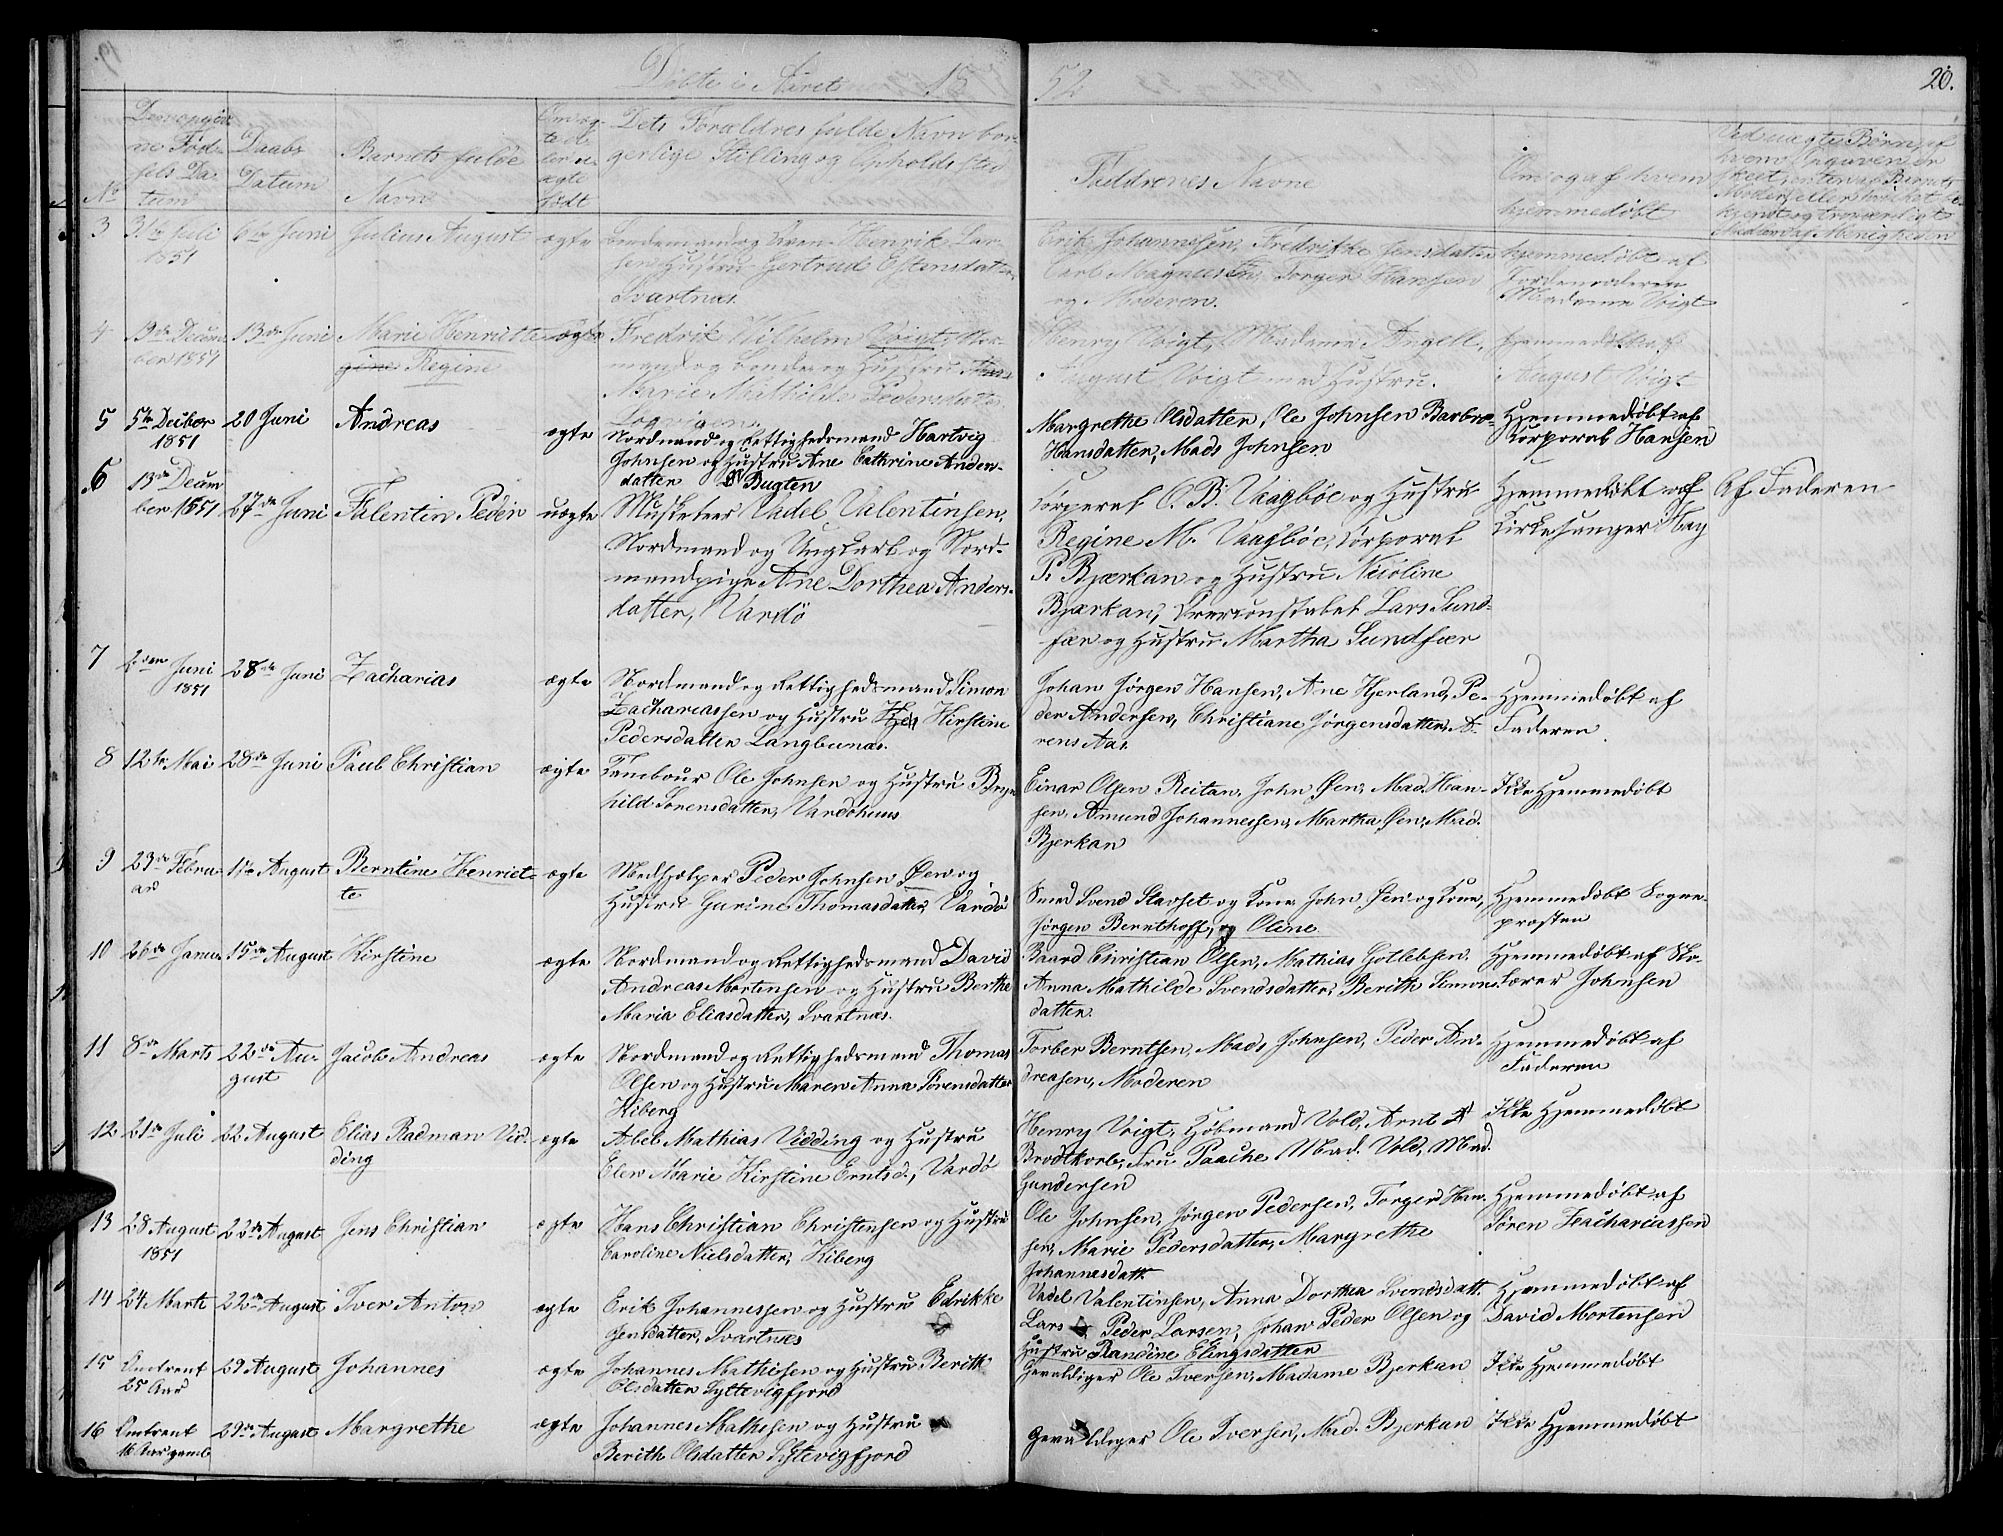 19.
Døbte i Aaret 18
52
20.
No
Den opgiv-
ne Fød-
sels Da-
tum
Daabs
Datum
Barnets fulde
Navn
Om æg-
te el-
ler u-
ægte
født
Dets Forældres fulde Navn bor-
gerlige Stilling og Opholdssted
Faddrenes Navne
Om og af hvem
hjemmedøbt
Ved uægte Børn, af
hvem Opgaven er
skeet, enten af Barnets
Moder, eller
Mænd af Menigheden
3
31te Juli
1851
6te Juni
Julius August
ægte
Bondemand og Qven Henrik Lar-
sen Hustru Gertrud Estensdatter,
Svartnæs.
Erik Johannessen, Fredrikke Jensdatter
Carl Magnussen, Torger Hansen
og Moderen.
hjemmedøbt af
Jordemoderen
Madame Voigt
4
13de Decem-
ber 1851
13de Juni
Marie Henriette
gine Regine
ægte
Fredrik Vilhelm Voigt, Nor-
mand og Bonde og Hustru
Marie Mathilde Pedersdatter
Henry Voigt, Madame Angell,
August Voigt med Hustru.
hjemmedøbt af
August Voigt
5
5te Decbor
1851
20 Juni
Andreas
ægte
Nordmand og Rettighedsmand Hartvig
Johnsen og Hustru Ane Cathrine Anders-
datter Bugten
Margrethe Olsdatter, Ole Johnsen Barbro
Hansdatter, Mads Johnsen
Hjemmedøbt af
Korporal Hansen
6
13de Decem
ber 1851
27de Juni
Falentin Peder
uægte
Musketeer Vadel Valentinsen,
Nordmand og Ungkarl og Nord-
mandpige Ane Dorthea Anders-
datter, Vardö
Korporal O. B. Vaagböe og Hustru
Regine M. Vaagböe, Korporal
P. Bjerkan og Hustru Nicoline
Bjerkan, Overconstabel Lars Sund-
fær og Hustru Martha Sundfær
Hjemmedøbt af
Kirkesanger Fag
Af Faderen
7
2den Juni
1851
28de Juni
Zacharias
ægte
Nordmand og Rettighedsmand Simon
Zachariassen og Hustru Kirstine
Pedersdatter Langbunæs.
Johan Jørgen Hansen, Ane Hjerland, Pe-
der Andersen, Christiane Jørgensdatter, A-
rens Aas.
Hjemmedøbt af
Faderen
8
12te Mai
28de Juni
Paul Christian
ægte
Tambour Ole Johnsen og Hustru Bryn
hild Sørensdatter, Vardöhuus
Einar Olsen Reitan, John Øen, Mad. Han-
sen, Amund Johannessen, Martha Øen, Mad.
Bjerkan
Ikke Hjemmedøbt
9
23de Febru-
ar
1ste August
Berntine Henriet-
te
ægte
Medhjælper Peder Johnsen Øen og
Hustru Gurine Thomasdatter Vardö
Smed Svend Stavset og Kone, John Øen og Kone,
Jørgen Bernthoff, og Oline
Hjemmedøbt Sogne-
presten
10
26de Janu
15de August
Kirstine
ægte
Nordmand og Rettighedsmand David
Andreas Mortensen og Hustru Berthe
Maria Eliasdatter, Svartnæs.
Baard Christian Olsen, Mathias Gotlebsen,
Anna Mathilde Svendsdatter, Berith Simons-
datter.
Hjemmedøbt af
Johnsen
11
8de Marts
22de Au-
gust
Jacob Andreas
ægte
Nordmand og Rettighedsmand Thomas
Olsen og Hustru Maren Anna Sørensdatter
Kiberg
Torber Berntsen, Mads Johnsen, Peder An-
dreasen, Moderen
Hjemmedøbt af
Faderen
12
21de Juli
22 August
Elias Radman Vid-
ding
ægte
Abel Mathias Vidding og Hustru
Elen Marie Kirstine Erntsd., Vardö
Henry Voigt, Kjøbmand Vold, Arnt A
Brodtkorb, Fru Paache Mad. Vold, Mad.
Gundersen
Ikke Hjemmedøbt
13
28 August
1851
22de August
Jens Christian
ægte
Hans Christian Christensen og Hustru
Caroline Nielsdatter, Kiberg
Ole Johnsen, Jørgen Pedersen, Torger Han-
sen, Marie Pedersdatter, Margrethe
Johannesdatt
Hjemmedøbt af
Sören Zachariassen
14
24 Marts
22de August
Iver Anton
ægte
Erik Johannessen og Hustru Edrikke
Jensdatter, Svartnæs
Vadel Valentinsen, Anna Dorthea Svendsdatt.
Lars Peder Larsen, Johan Peder Olsen og
Hustru Randine Elingsdatter
Hjemmedøbt af
David Mortensen
15
Omtrent
25 Aar
29 August
Johannes
ægte
Johannes Mathisen og Hustru Berith
Olsdatter Syltevigfjord
Gevaldiger Ole Iversen, Madame Bjerkan
Ikke Hjemmedøbt
16
Omtrent
16 Aar gamle
29de August
Margrethe
ægte
Johannes Mathisen og Hustru
Berith Olsdatter Syltevigfjord
Gevaldiger Ole Iversen, Mad. Bjerkan
Ikke Hjemmedøbt